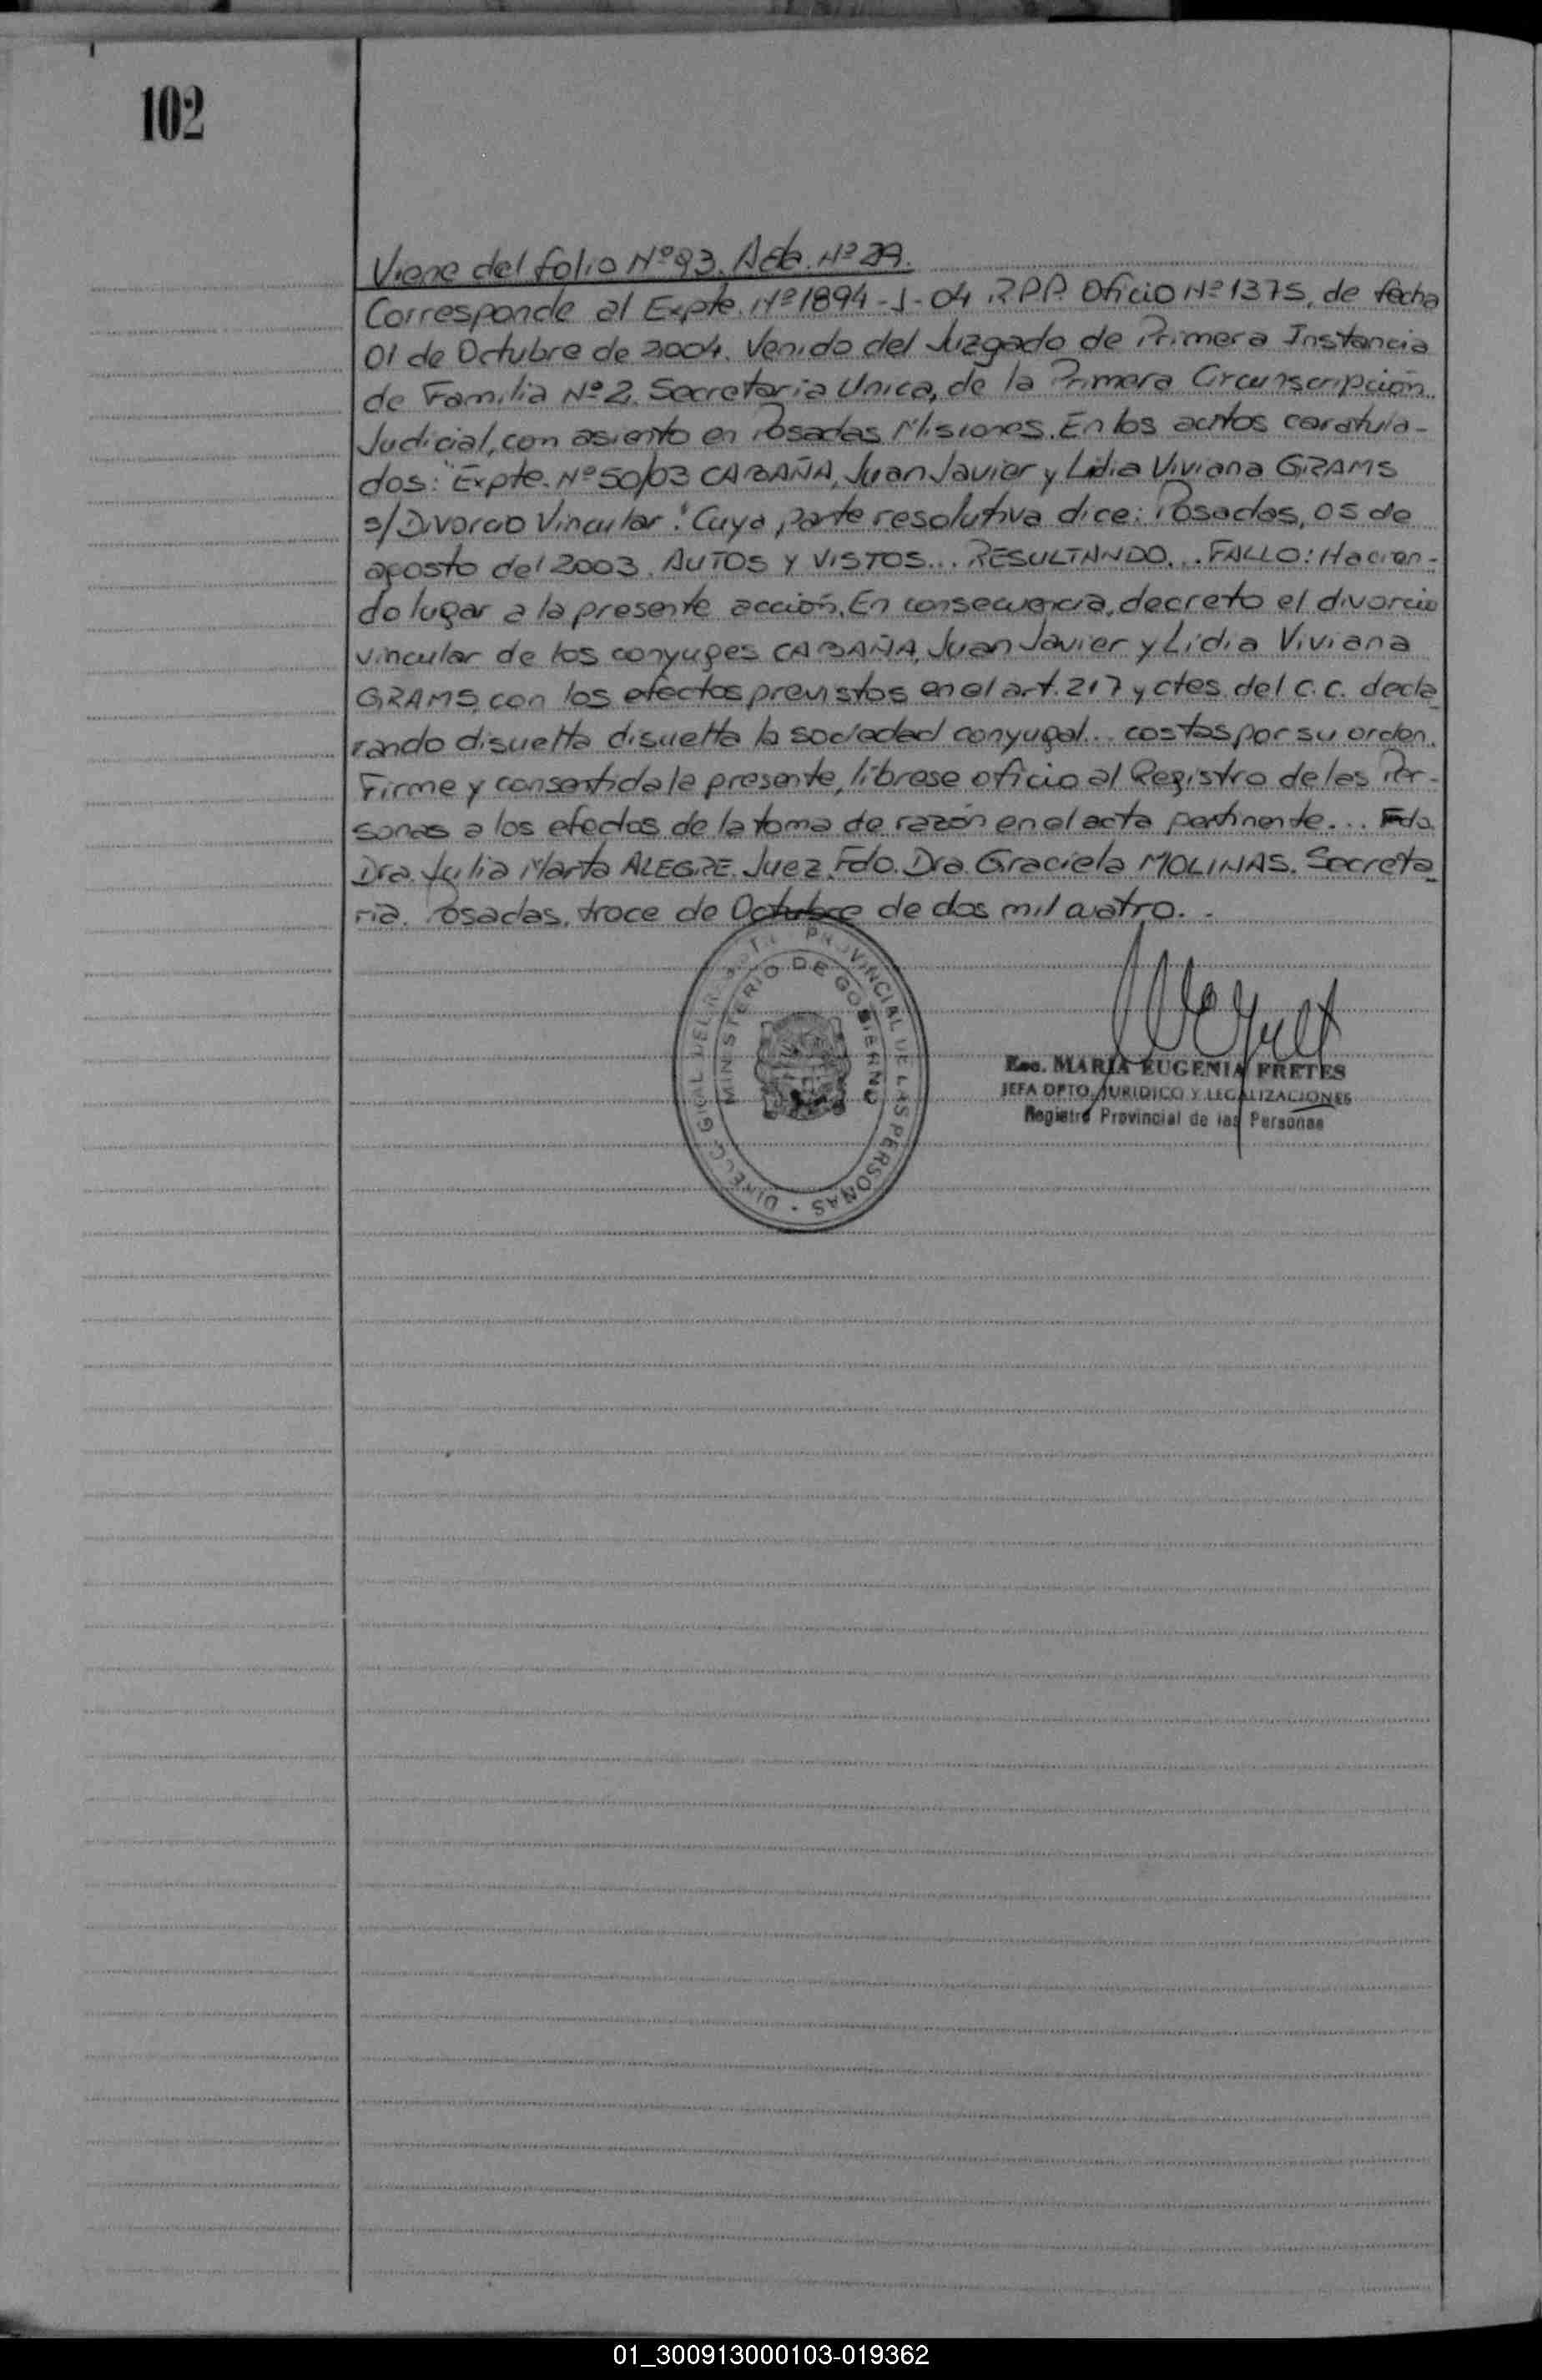 102
Viene del folio Nº 93. Acta. Nº
Corresponde al Expte. Nº 1894-J-04 R.P.P. Oficio Nº 1375, de fecha
01 de Octubre de 2004. Venido del Juzgado de Primera Instancia
de Familia Nº 2. Secretaria Unica, de la Primera Circunscripción
Judicial, con asiento en Posadas Misiones. En los autos caratula-
dos: "Expte. Nº 50/03 CABAÑA, Juan Javier y Lidia Viviana GRAMS
s/Divorcio Vincular". Cuya parte resolutiva dice: Posadas, 05 de
agosto del 2003. AUTOS Y VISTOS... RESULTANDO... FALLO: Hacien-
do lugar a la presente acción. En consecuencia, decreto el divorcio
vincular de los conyuges CABAÑA, Juan Javier y Lidia Viviana
GRAMS, con los efectos previstos en el art. 217 y ctes. del C.C. decla
rando disuelta disuelta la sociedad conyugal... costas por su orden.
Firme y consentida la presente, líbrese oficio al Registro de las Per-
sonas a los efectos de la toma de razón en el acta pertinente... Fdo.
Dra. Julia Marta ALEGRE. Juez. Fdo. Dra. Graciela MOLINAS. Secreta
ria. Posadas, trece de Octubre de dos mil cuatro.
DIRECC. GRAL DEL PROVINCIAL DE LAS PERSONAS
MINISTERIO DE GOBIERNO
Esc. MARIA EUGENIA FRETES
JEFA DPTO. JURIDICO Y LEGALIZACIONES
Registro Provincial de las Personas
01_300913000103-019362